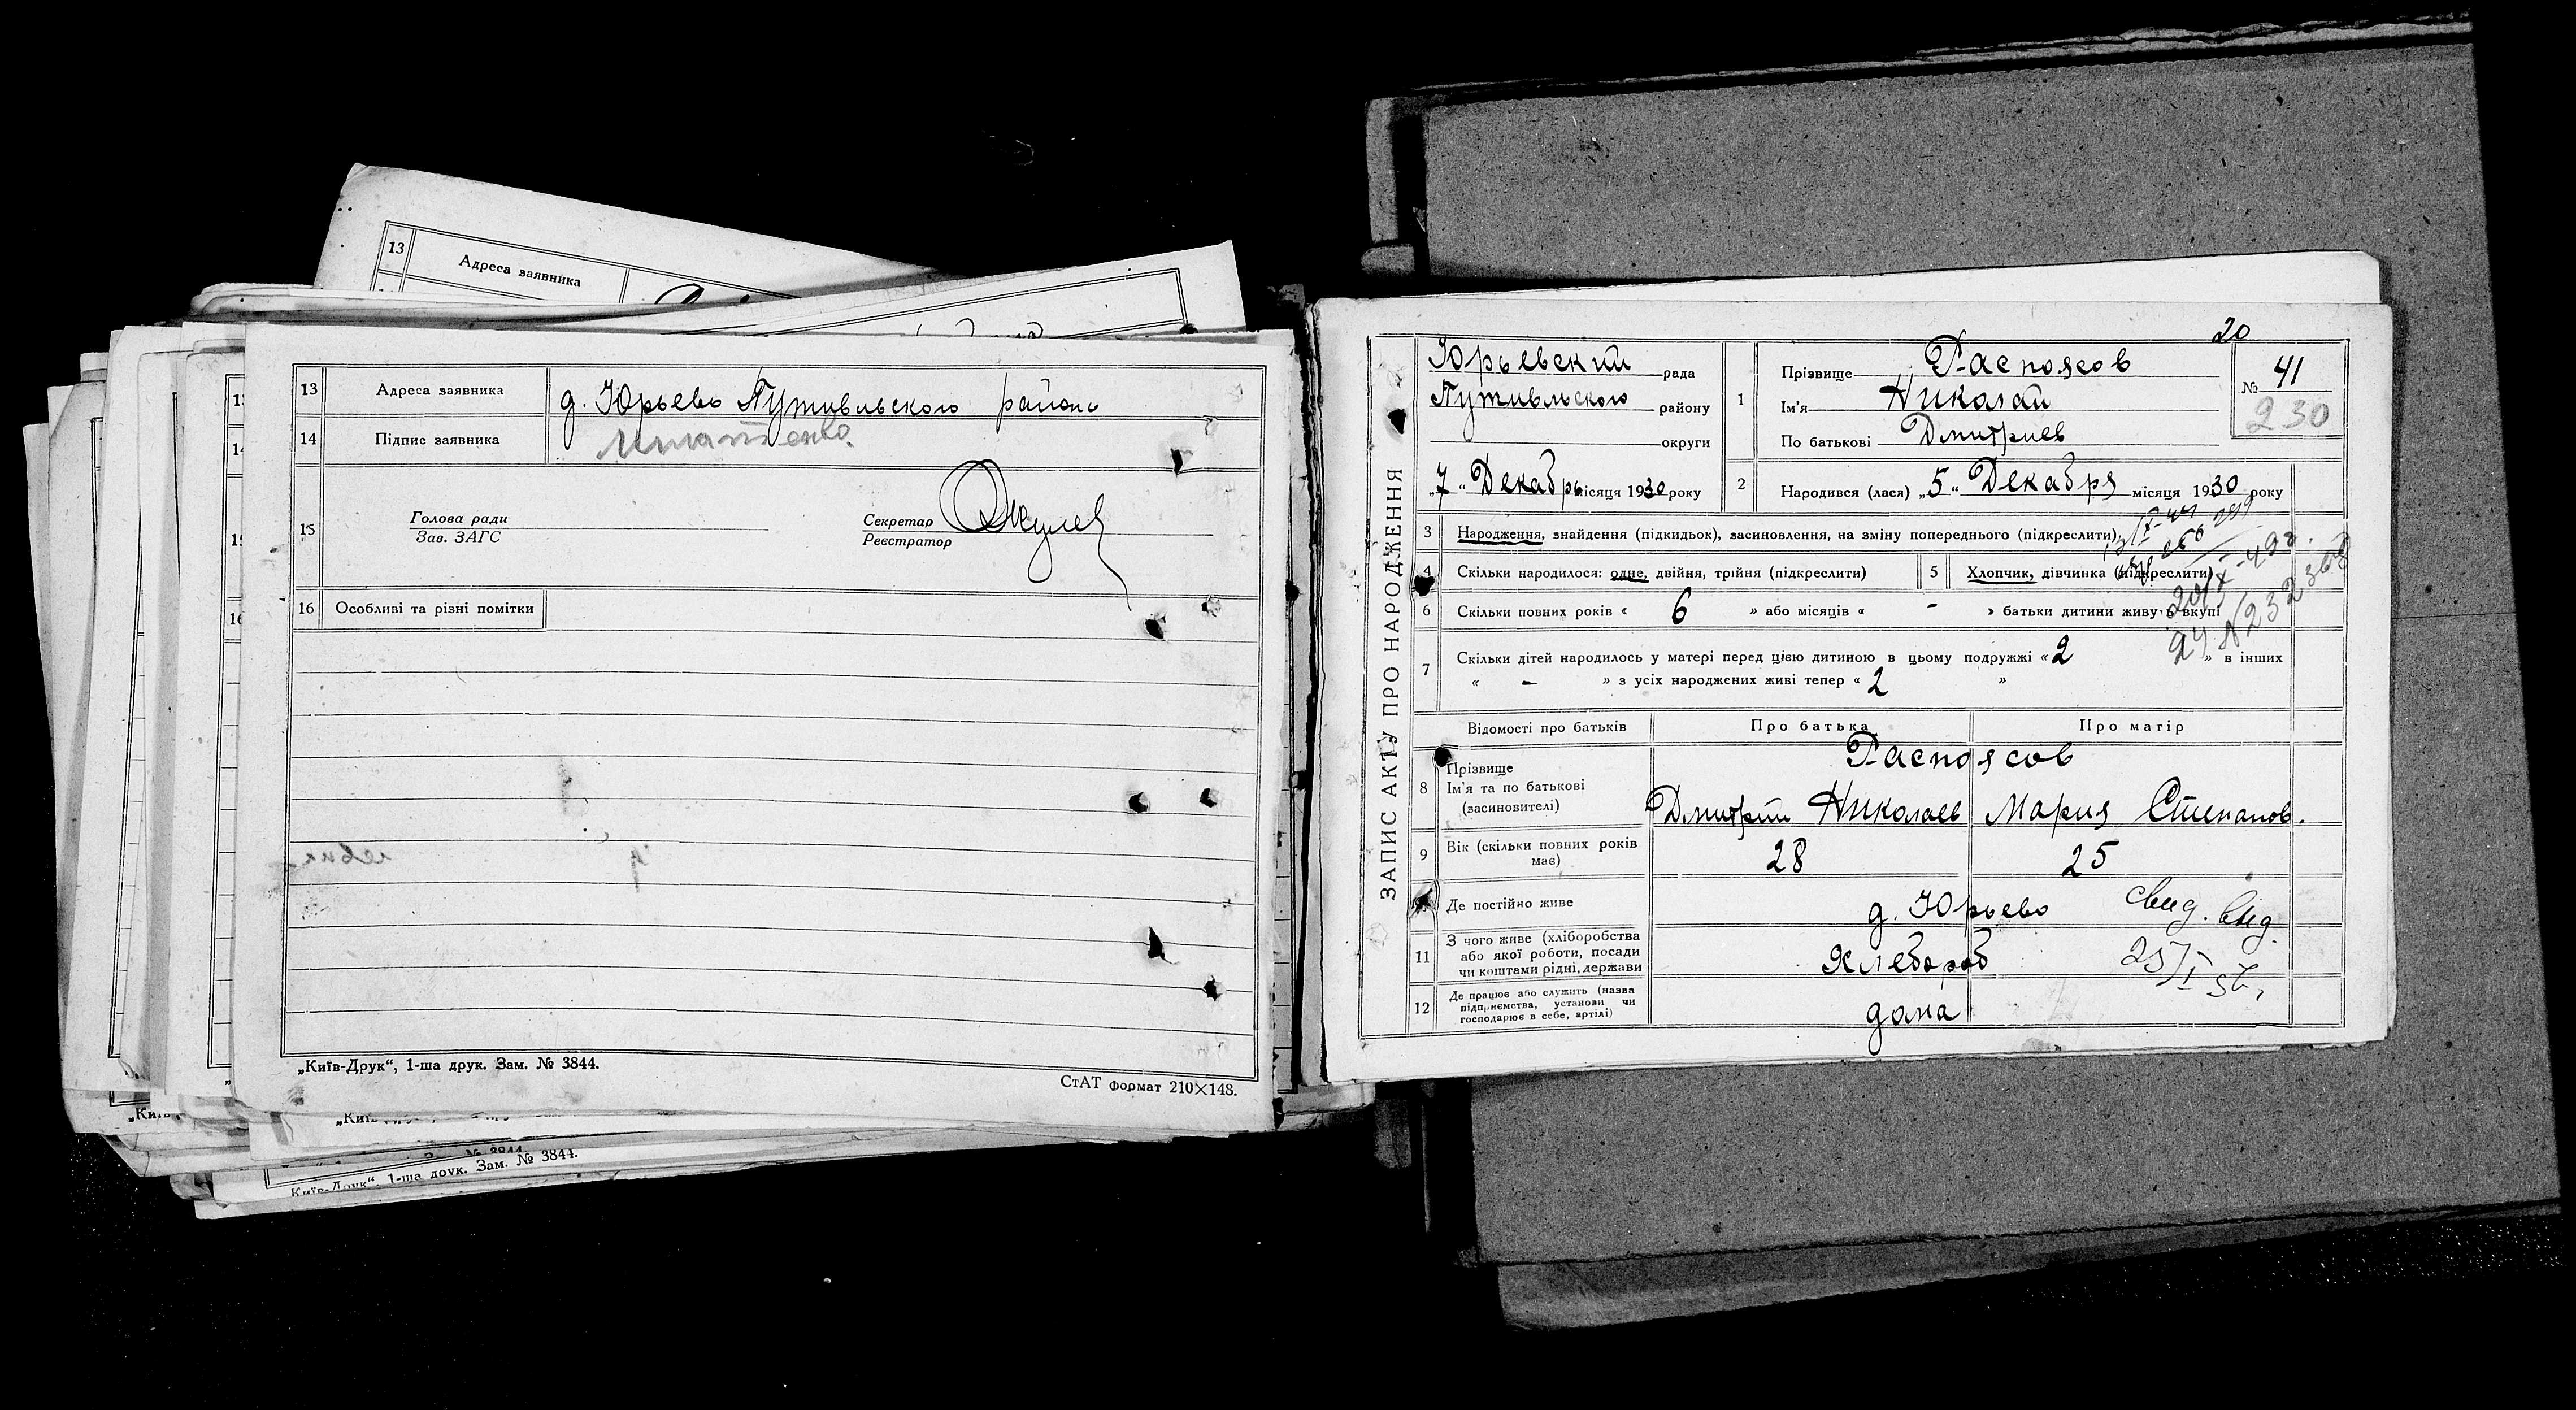 13 Адреса заявника
13 Адреса заявника д. Юрьево Путивльского района
14 Підпис заявника
15 Голова ради Секретар
Зав. ЗАГС Реєстратор
16 Особливі та різні помітки
„Київ-Друк“, 1-ша друк. Зам. № 3844.
СтАТ формат 210×148.
1-ша друк. Зам. № 3844.
20
ЗАПИС АКТУ ПРО НАРОДЖЕННЯ
Юрьевский рада
Путивльского району
округи
„7“ Декабрь місяця 1930 року
1 Прізвище Распоясов
Ім'я Николай
По батькові Дмитриев
№ 41
230
2 Народився (лася) „5“ Декабря місяця 1930 року
3 Народження, знайдення (підкидьок), засиновлення, на зміну попереднього (підкреслити)
4 Скільки народилося: одне, двійня, трійня (підкреслити) 5 Хлопчик, дівчинка (підкреслити)
6 Скільки повних років « 6 » або місяців « - » батьки дитини живуть вкупі
7 Скільки дітей народилось у матері перед цією дитиною в цьому подружжі « 2 » в інших
« - » з усіх народжених живі тепер « 2 »
Відомості про батьків Про батька Про матір
8 Прізвище Распоясов
Ім'я та по батькові
(засиновителі) Дмитрий Николаев Мария Степанов.
9 Вік (скільки повних років має) 28 25
Де постійно живе д. Юрьево
свид. выд.
11 З чого живе (хліборобства
або якої роботи, посади
чи коштами рідні, держави Хлебороб
12 Де працює або служить (назва
підприємства, установи чи
господарює в себе, артілі) дома